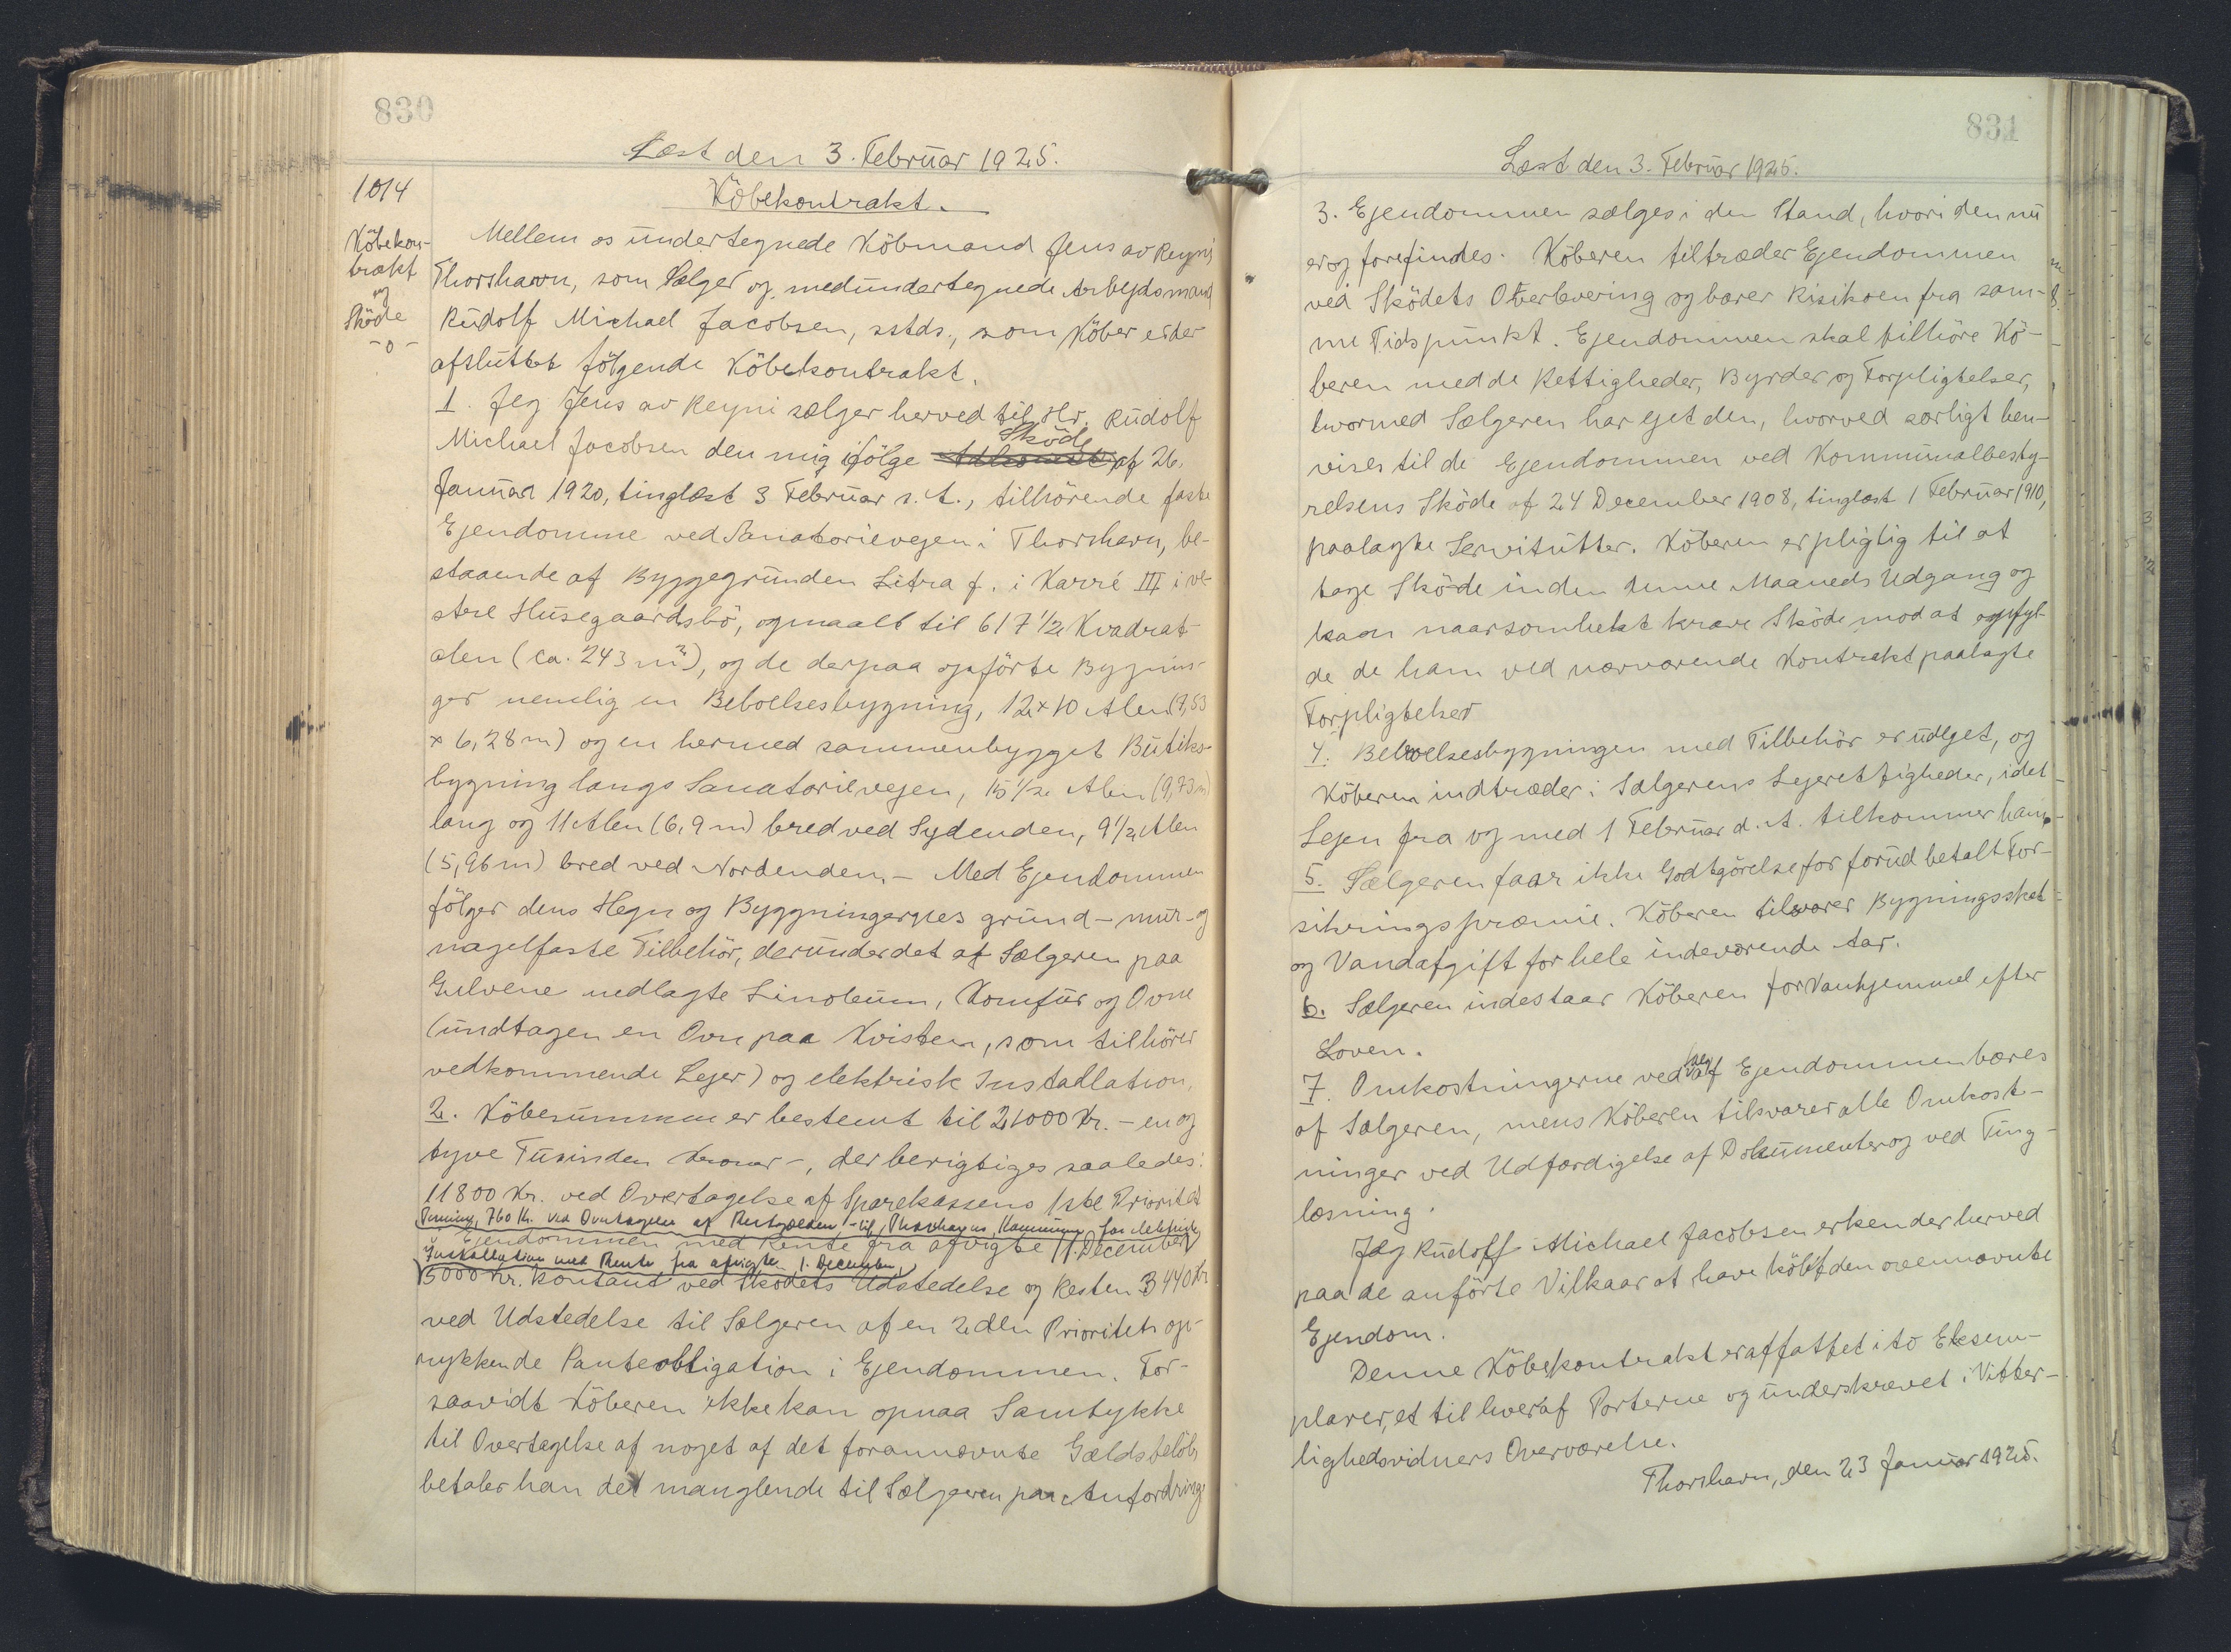 830
Læst den 3. Februar 1925.
1014
Köbekon-
trakt
og
Sköde
-o-
Köbekontrakt.
Mellem os undertegnede Köbmand Jens av Reyni
Thorshavn, som Sælger og medundertegnede Arbejdsmand
Rudolf Michael Jacobsen, sstds., som Köber er der
afsluttet fölgende Köbekontrakt.
1. Jeg Jens av Reyni sælger herved til Hr. Rudolf
Michael Jacobsen den mig ifölge Sköde af 26.
Januar 1920, tinglæst 3 Februar s. A., tilhörende faste
Ejendomme ved Sanatorievejen i Thorshavn, be-
staaende af Byggegrunden Litra f. i Karré III i ve-
stre Husegaardsbö, opmaalt til 617 1/2 Kvadrat-
alen (ca. 243 m²), og de derpaa opförte Bygnin-
ger nemlig en Beboelsesbygning, 12 x 10 Alen (7,53
x 6,28 m) og en hermed sammenbygget Butiks-
bygning langs Sanatorievejen, 15 1/2 Alen (9,73 m)
lang og 11 Alen (6,9 m) bred ved Sydenden, 9 1/2 Alen
(5,96 m) bred ved Nordenden. - Med Ejendommen
fölger dens Hegn og Byggningernes grund- mur- og
nagelfaste Tilbehör, derunder det af Sælgeren paa
Gulvene nedlagte Linoleum, Komfur og Ovne
(undtagen en Ovn paa Kvisten, som tilhörer
vedkommende Lejer) og elektrisk Installation.
2. Köbesummen er bestemt til 21000 Kr. - en og
tyve Tusinden Kroner -, der berigtiges saaledes:
11800 Kr. ved Overtagelse af Sparekassens 1ste Prioritet
760 Kr. ved Overtagelse af Restgælden til Thorshavns Kommune for elektrisk
Ejendommen med Rente fra afvigte 11. December
Installation med Rente fra afvigte 1. December,
5000 Kr. kontant ved Skødets Udstedelse og Resten 3440 Kr
ved Udstedelse til Sælgeren af en 2den Prioritets op-
rykkende Panteobligation i Ejendommen. For-
saavidt Köberen ikke kan opnaa Samtykke
til Overtagelse af noget af det forannævnte Gældsbelöb
betaler han det manglende til Sælgeren paa Anfordring
831
Læst den 3. Februar 1925.
3. Ejendommen sælges i den Stand, hvori den nu
er og forefindes. Köberen tiltræder Ejendommen
ved Sködets Overlevering og bærer Risikoen fra sam-
me Tidspunkt. Ejendommen skal tilhöre Kö-
beren med de Rettigheder, Byrder og Forpligtelser,
hvormed Sælgeren har ejet den, hvorved særligt hen-
vises til de Ejendommen ved Kommunalbesty-
relsens Sköde af 24 December 1908, tinglæst 1 Februar 1910,
paalagte Servitutter. Köberen er pligtig til at
tage Sköde inden denne Maaneds Udgang og
kan naarsomhelst kræve Sköde mod at opfyl-
de de ham ved nærværende Kontrakt paalagte
Forpligtelser
4. Beboelsesbygningen med Tilbehör er udlejet, og
Köberen indtræder i Sælgerens Lejerettigheder, idet
Lejen fra og med 1 Februar d. A. tilkommer ham.-
5. Sælgeren faar ikke Godtgörelse for forud betalt For-
sikringspræmie. Köberen tilsvarer Bygningsskat
og Vandafgift for hele indeværende Aar.
6. Sælgeren indestaar Köberen for Vanhjemmel efter
Loven.
7. Omkostningerne ved Salg af Ejendommen bæres
af Sælgeren, mens Köberen tilsvarer alle Omkost-
ninger ved Udfærdigelse af Dokumenter og ved Ting-
læsning.
Jeg Rudolf Michael Jacobsen erkender herved
paa de anförte Vilkaar at have köbt den ovennævnte
Ejendom.
Denne Köbekontrakt er affattet i to Eksem-
plarer, et til hver af Parterne og underskrevet i Vitter-
lighedsvidners Overværelse.
Thorshavn, den 23 Januar 1925.